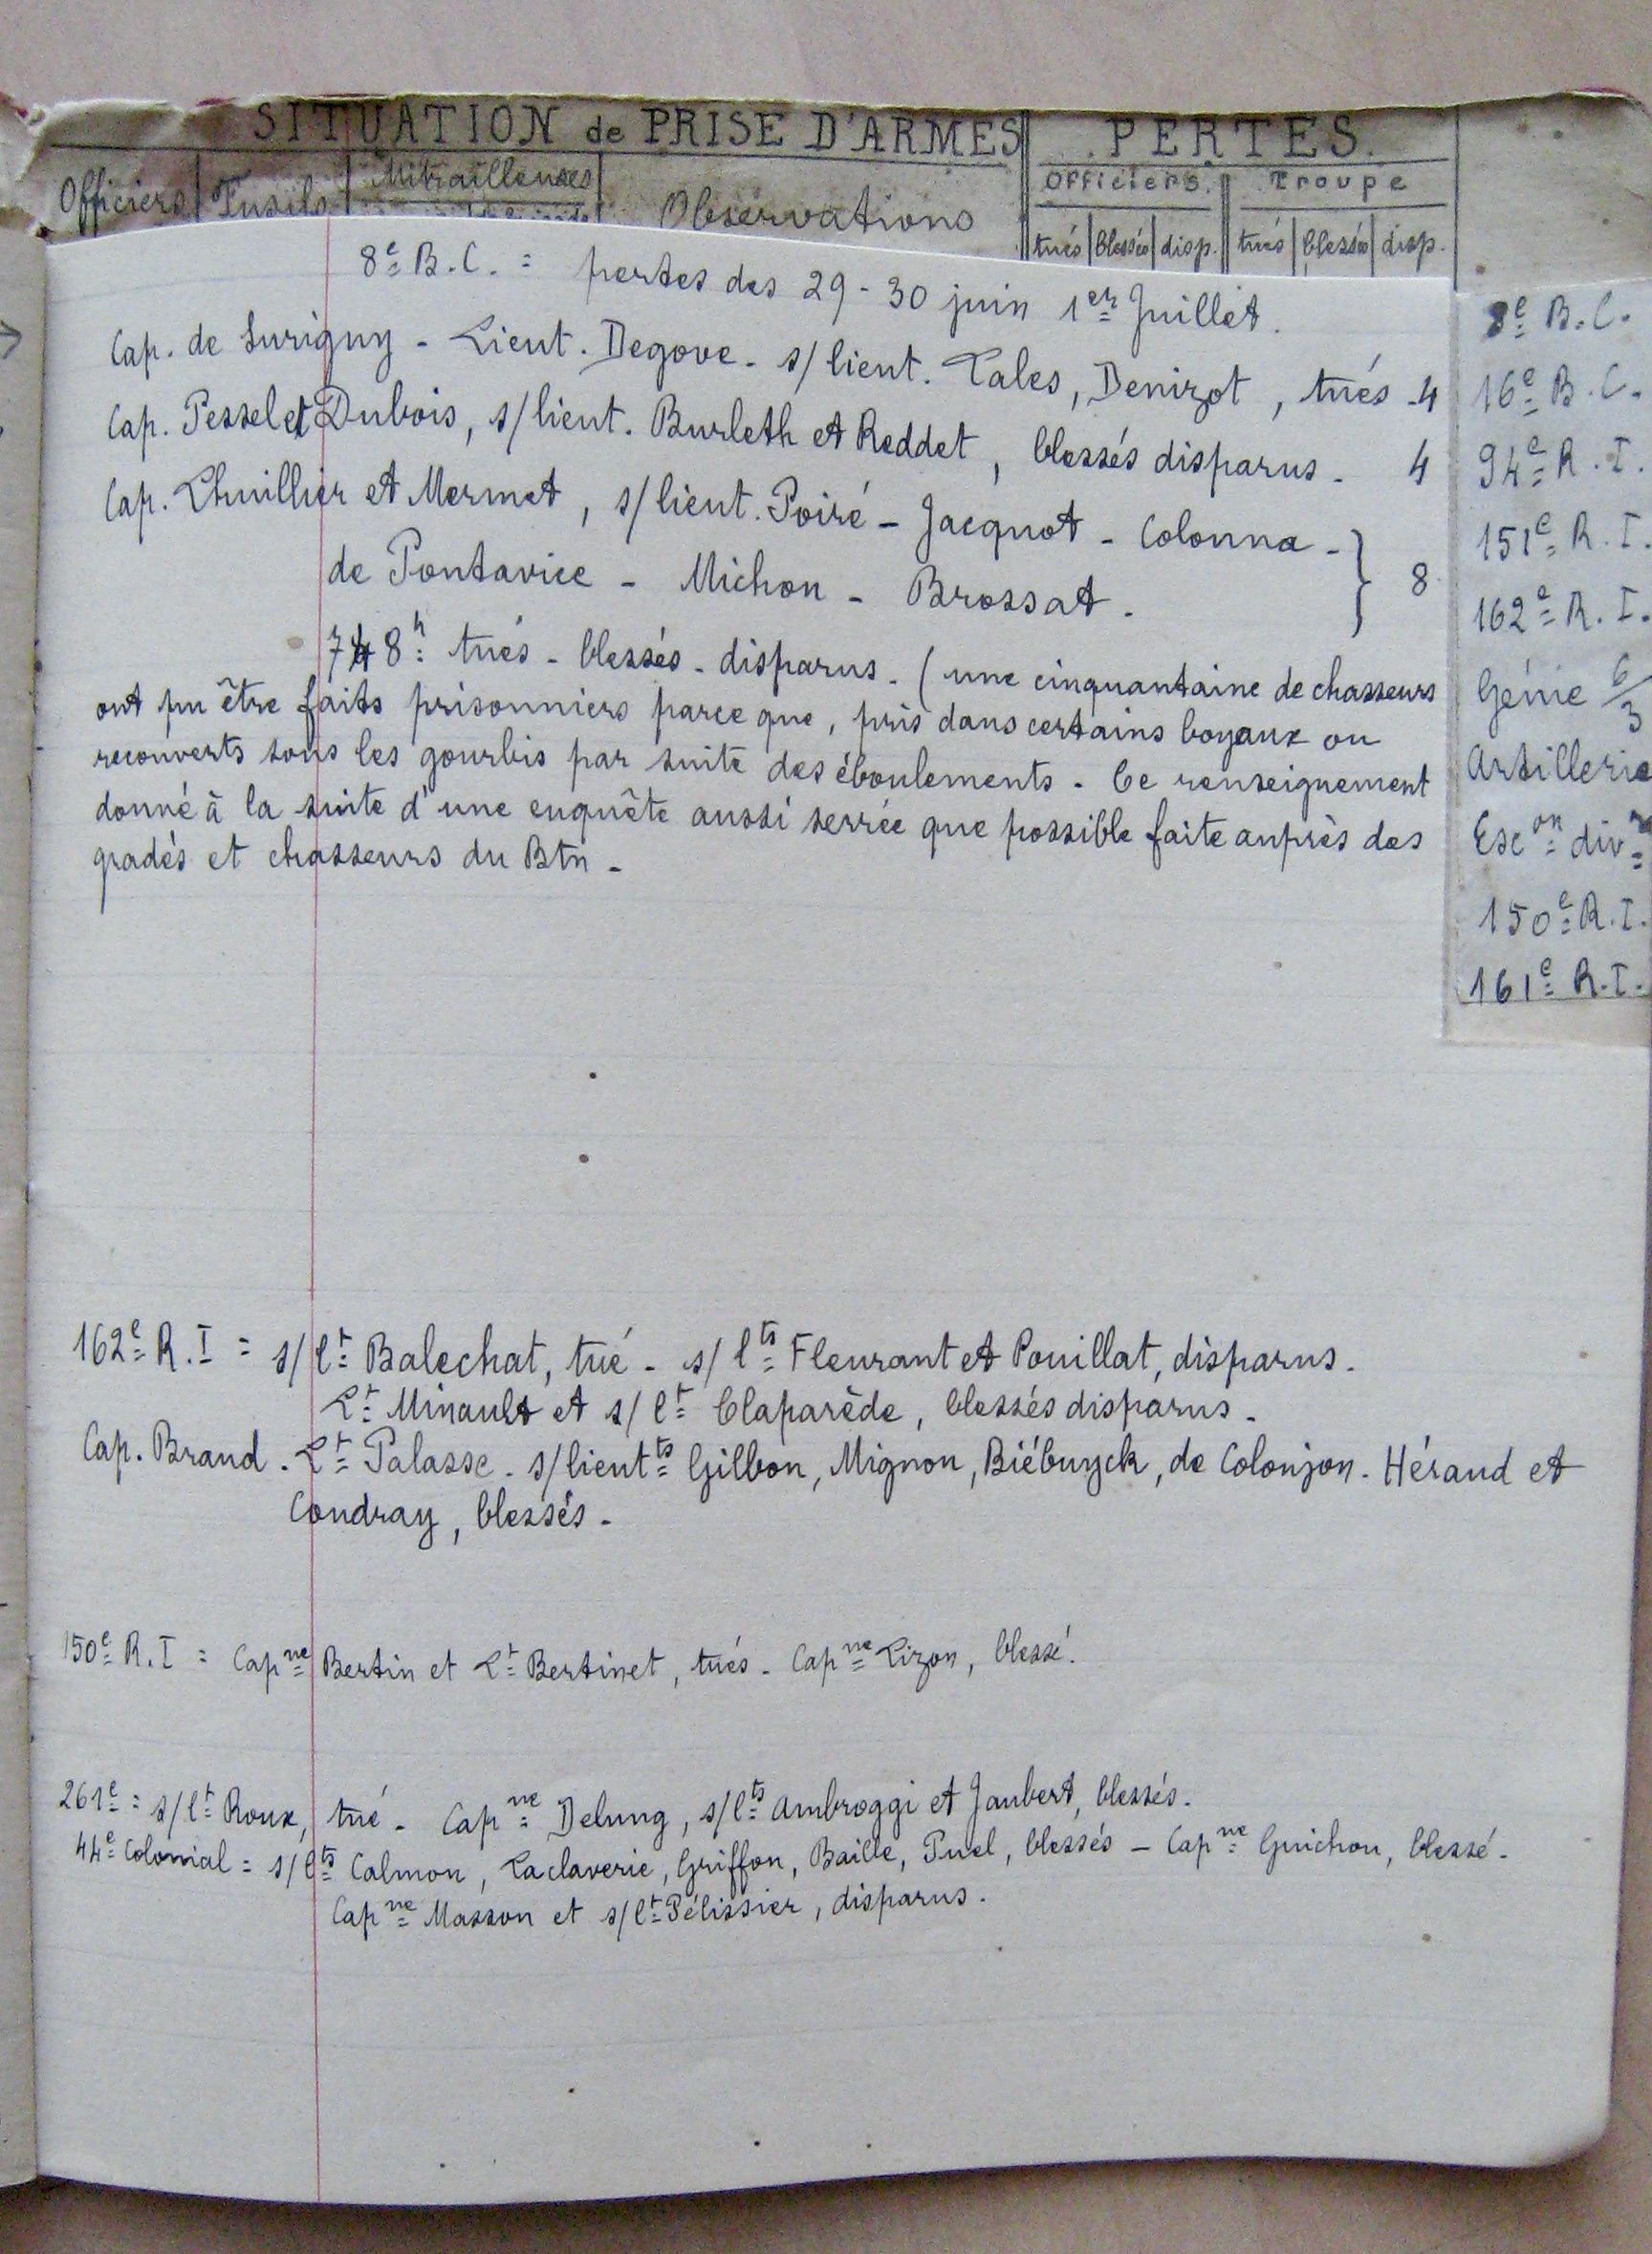 SITUATION de PRISE D'ARMES
PERTES.
Officiers
Fusils
Mitrailleuses
Observations
Officiers.
Troupe
tués blessés disp.
tués blessés disp.
8e B.C. = pertes des 29 - 30 juin 1er Juillet.
Cap. de Surigny - Lieut. Degove - s/lieut. Lales, Denizot, tués - 4
Cap. Pessel et Dubois, s/lieut. Burleth et Reddet, blessés disparus - 4
Cap. Lhuillier et Mermet, s/lieut. Poiré - Jacquot - Colonna -
de Pontavice - Michon - Brossat. } 8
748h tués - blessés - disparus - (une cinquantaine de chasseurs
ont pu être faits prisonniers parce que, pris dans certains boyaux ou
recouverts sous les gourbis par suite des éboulements. Ce renseignement
donné à la suite d'une enquête aussi serrée que possible faite auprès des
gradés et chasseurs du Btn -
8e B.C.
16e B.C.
94e R.I.
151e R.I.
162e R.I.
Génie 6/3
Artillerie
Escon div
150e R.I.
161e R.I.
162e R.I = s/lt Balechat, tué - s/lts Fleurant et Pouillat, disparus.
Lt Minault et s/lt Claparède, blessés disparus -
Cap. Braud - Lt Palasse - s/lieutts Gilbon, Mignon, Biébuyck, de Colonjon - Héraud et
Coudray, blessés -
150e R.I = Capne Bertin et Lt Bertinet, tués - Capne Lizon, blessé.
261e = s/lt Roux, tué - Capne Delung, s/lts Ambroggi et Jaubert, blessés.
44e Colonial = s/lts Calmon, Laclaverie, Griffon, Baille, Puel, blessés - Capne Guichou, blessé -
Capne Masson et s/lt Pélissier, disparus.